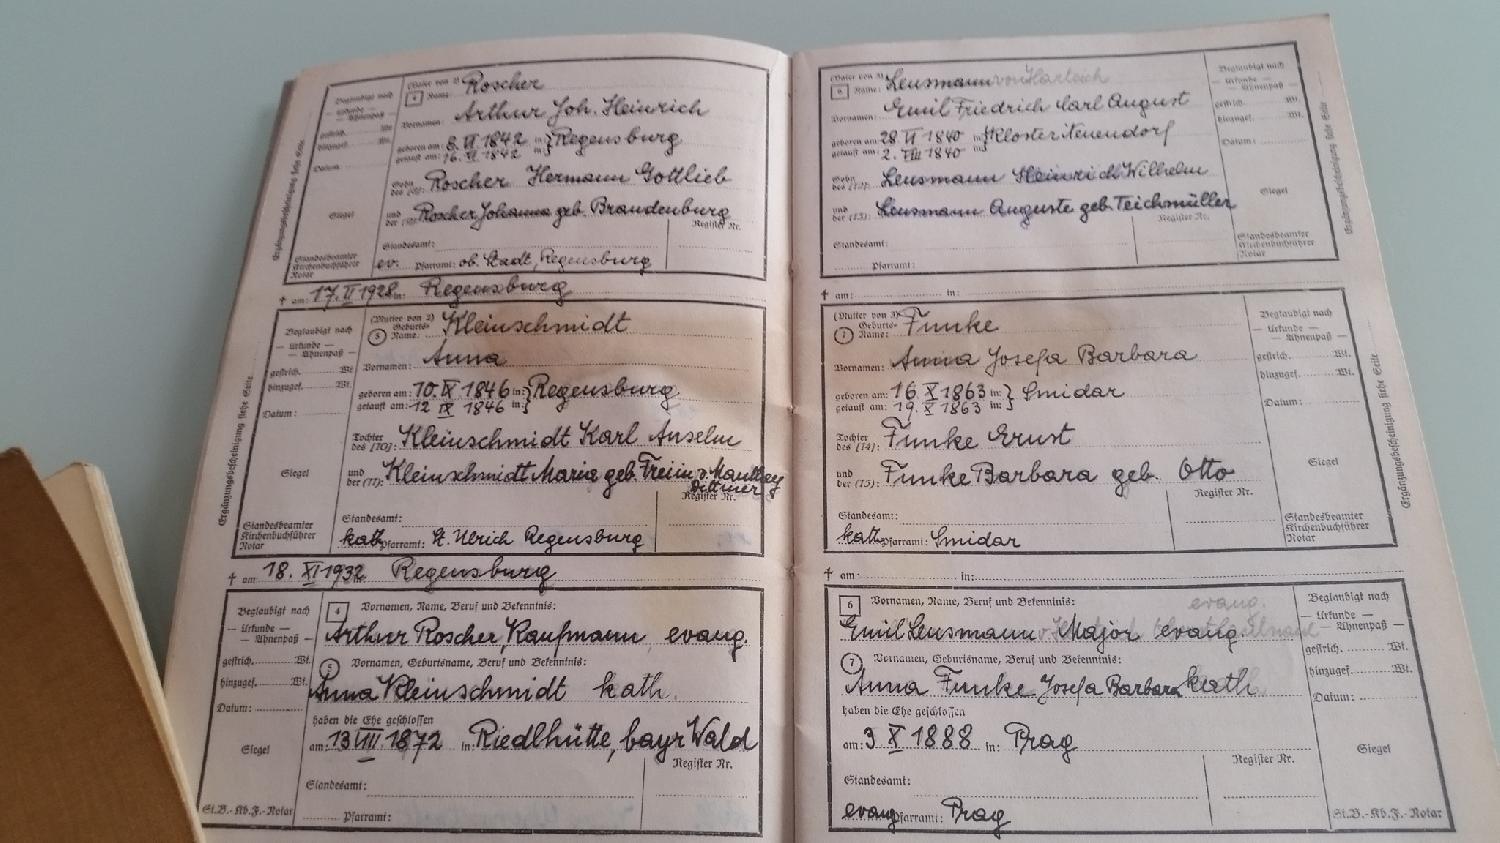 Beglaubigt nach
— Urkunde —
— Ahnenpaß —
gestrich. Wt.
hinzugef. Wt.
Datum:
Siegel
Standesbeamter
Kirchenbuchführer
Notar
Ergänzungsbescheinigung siehe Seite
(Vater von 2)
4 Name: Roscher
Vornamen: Arthur Joh. Heinrich
geboren am: 8. VI 1842 in: } Regensburg
getauft am: 16. VI 1842 in:
Sohn des (8): Roscher Hermann Gottlieb
und der (9): Roscher Johanna geb. Brandenburg
Register Nr.
Standesamt:
ev. Pfarramt: ob. Stadt, Regensburg
† am: 17. II 1928 in: Regensburg
Beglaubigt nach
— Urkunde —
— Ahnenpaß —
gestrich. Wt.
hinzugef. Wt.
Datum:
Siegel
Standesbeamter
Kirchenbuchführer
Notar
Ergänzungsbescheinigung siehe Seite
(Mutter von 2)
5 Geburts-Name: Kleinschmidt
Vornamen: Anna
geboren am: 10. IX 1846 in: } Regensburg
getauft am: 12 IX 1846 in:
Tochter des (10): Kleinschmidt Karl Anselm
und der (11): Kleinschmidt Maria geb. Freiin v.
Dittmer
Register Nr.
Standesamt:
kath. Pfarramt: St. Ulrich Regensburg
† am 18. XI 1932 in Regensburg
Beglaubigt nach
— Urkunde —
— Ahnenpaß —
gestrich. Wt.
hinzugef. Wt.
Datum:
Siegel
St.B.-Kb.F.-Notar
4 Vornamen, Name, Beruf und Bekenntnis:
Arthur Roscher, Kaufmann evang.
5 Vornamen, Geburtsname, Beruf und Bekenntnis:
Anna Kleinschmidt kath.
haben die Ehe geschlossen
am: 13 VIII. 1872 in: Riedlhütte, bayr Wald
Register Nr.
Standesamt:
Pfarramt:
(Vater von 3)
6 Name: Leusmann von
Vornamen: Emil Friedrich Carl August
geboren am: 28. VI 1840 in: }
getauft am: 2. VIII 1840 in:
Sohn des (12): Leusmann Heinrich Wilhelm
und der (13): Leusmann Auguste geb. Teichmüller
Register Nr.
Standesamt:
Pfarramt:
Beglaubigt nach
— Urkunde —
— Ahnenpaß —
gestrich. Wt.
hinzugef. Wt.
Datum:
Siegel
Standesbeamter
Kirchenbuchführer
Notar
Ergänzungsbescheinigung siehe Seite
† am: in:
(Mutter von 3)
7 Geburts-Name: Funke
Vornamen: Anna Josefa Barbara
geboren am: 16. X 1863 in: } Smidar
getauft am: 19. X 1863 in:
Tochter des (14): Funke Ernst
und der (15): Funke Barbara geb. Otto
Register Nr.
Standesamt:
kath. Pfarramt: Smidar
Beglaubigt nach
— Urkunde —
— Ahnenpaß —
gestrich. Wt.
hinzugef. Wt.
Datum:
Siegel
Standesbeamter
Kirchenbuchführer
Notar
Ergänzungsbescheinigung siehe Seite
† am: in:
6 Vornamen, Name, Beruf und Bekenntnis:
evang.
Emil Leusmann Major evang
7 Vornamen, Geburtsname, Beruf und Bekenntnis:
Anna Funke Josefa Barbara kath.
haben die Ehe geschlossen
am: 3 X 1888 in: Prag
Register Nr.
Standesamt:
evang Pfarramt: Prag
Beglaubigt nach
— Urkunde —
— Ahnenpaß —
gestrich. Wt.
hinzugef. Wt.
Datum:
Siegel
St.B.-Kb.F.-Notar